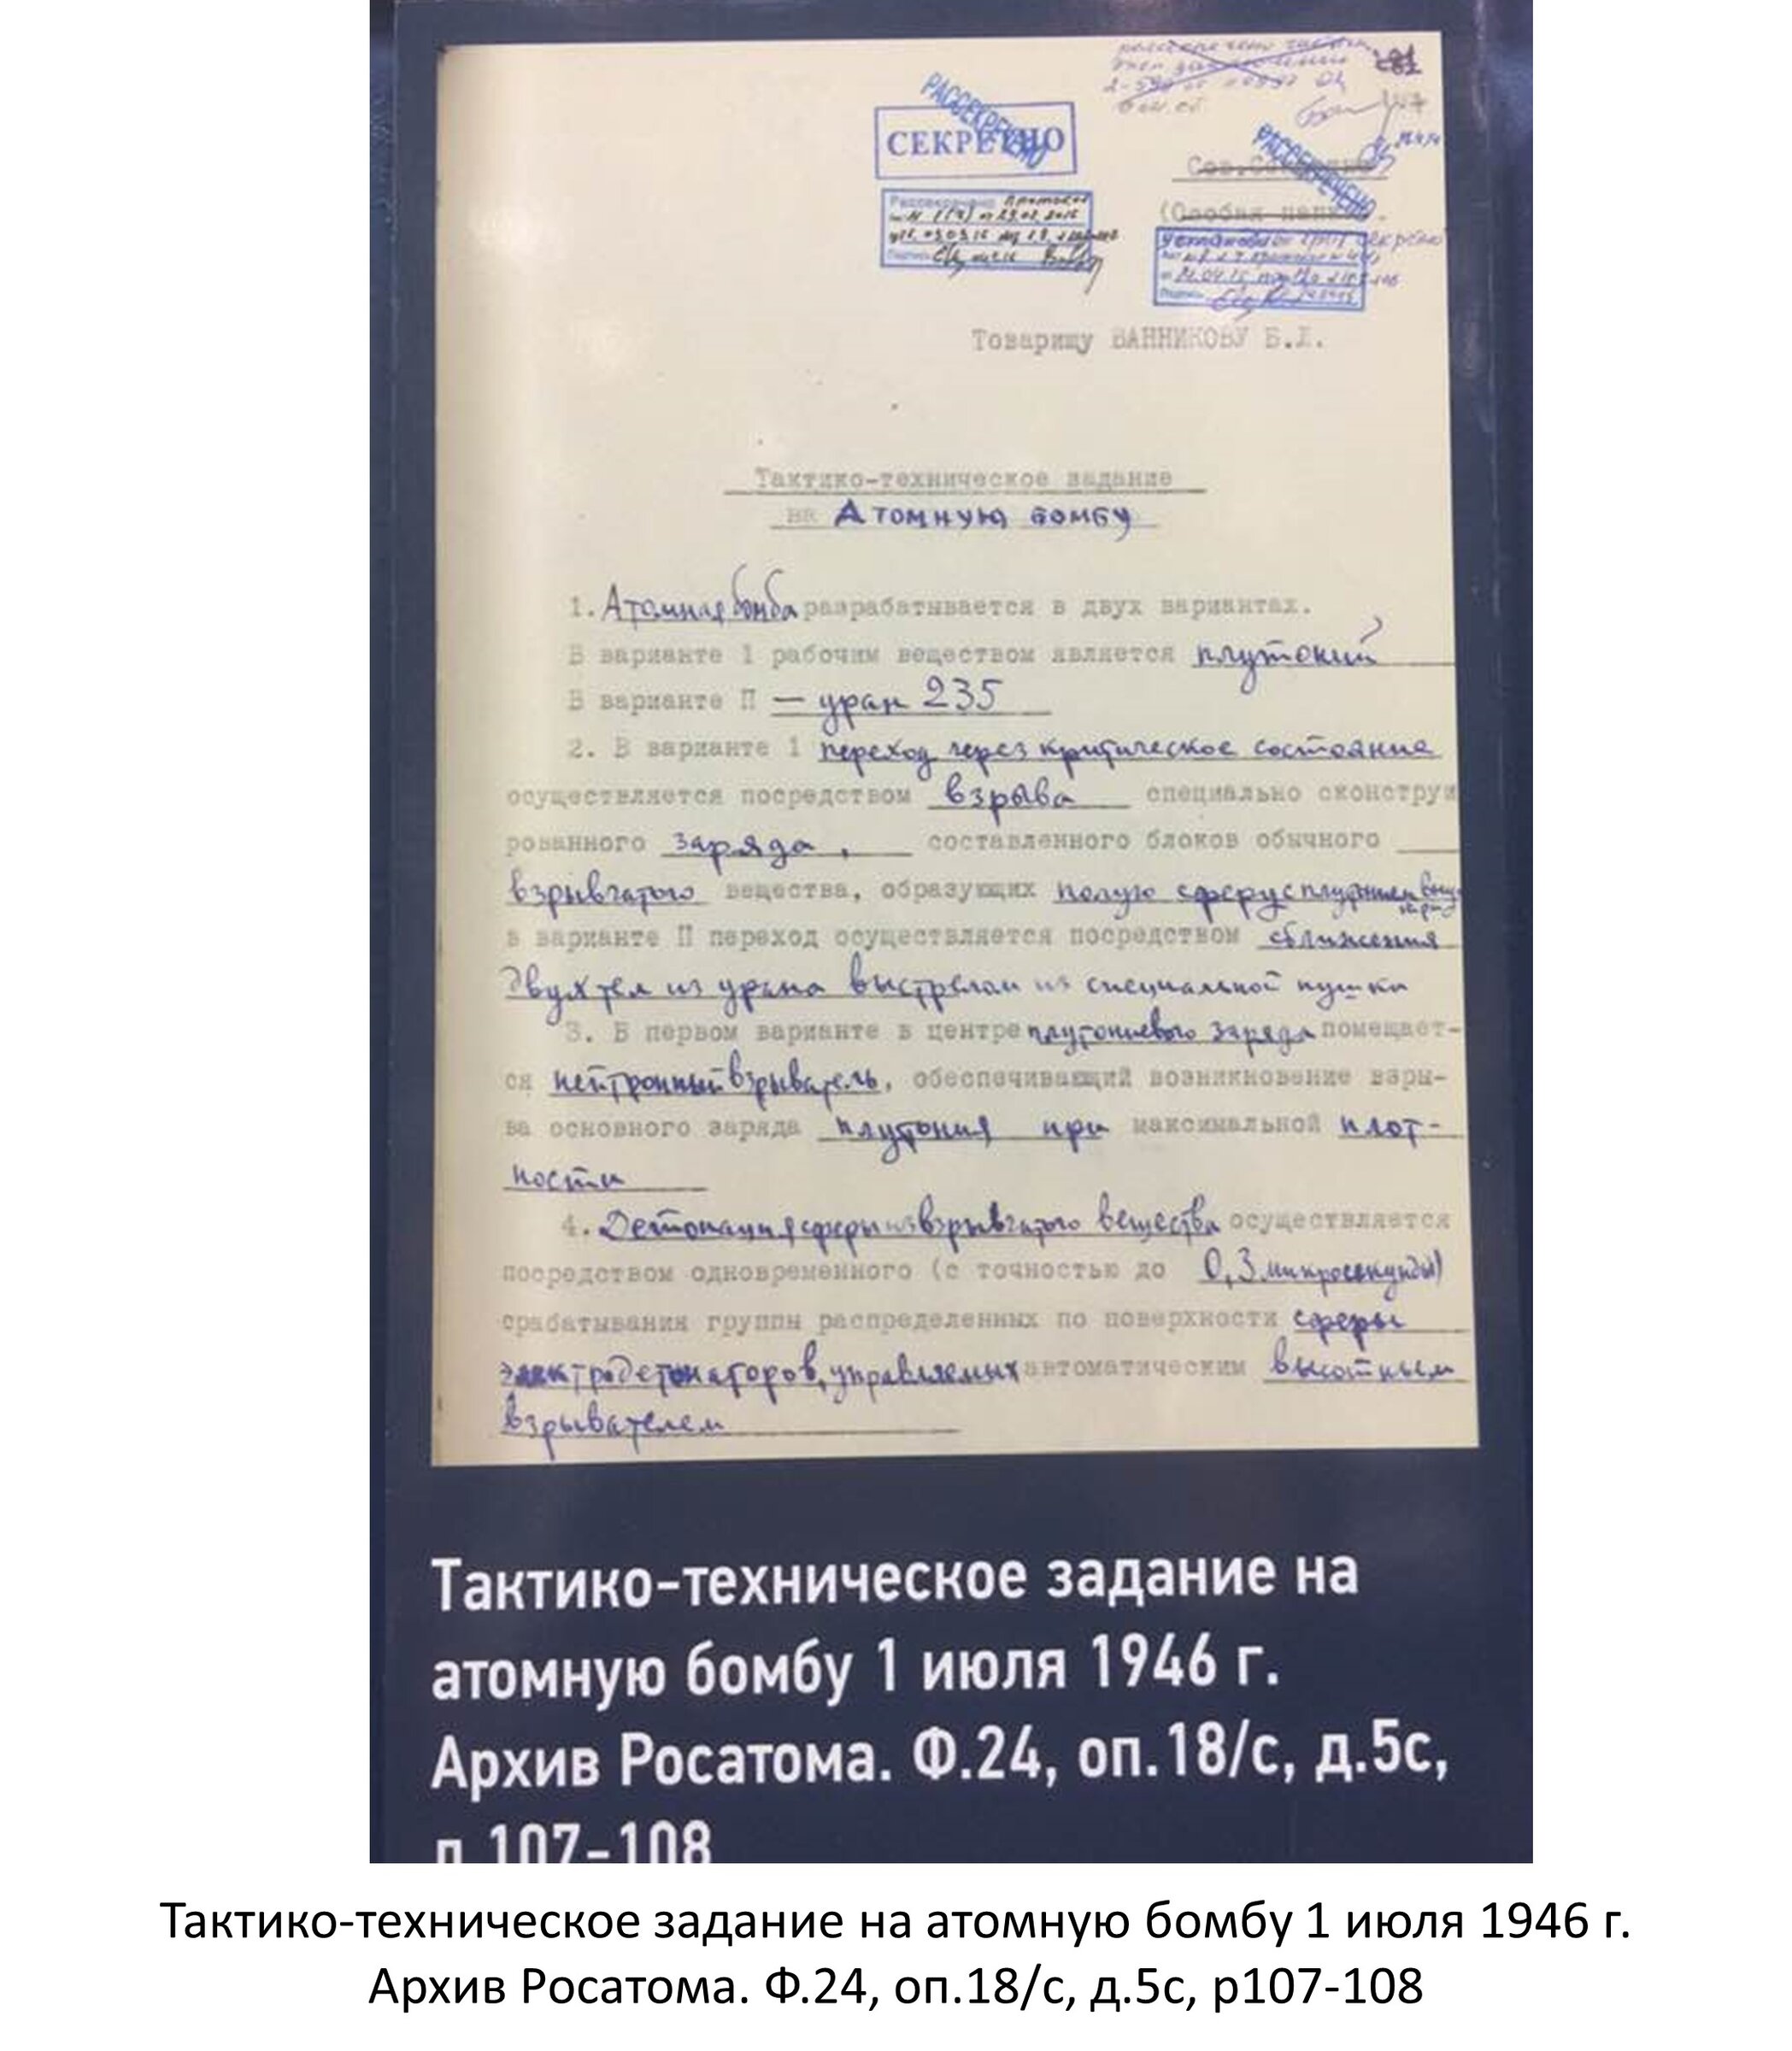 СЕКРЕТНО
РАССЕКРЕЧЕНО
Рассекречено
Сов.Се
РАССЕКРЕЧЕНО
(Особая папка).
Товарищу ВАННИКОВУ Б.Л.
Тактико-техническое задание
на Атомную бомбу
1. Атомная бомба разрабатывается в двух вариантах.
В варианте 1 рабочим веществом является плутоний
В варианте П — уран 235
2. В варианте 1 переход через критическое состояние
осуществляется посредством взрыва специально сконструи
рованного заряда, составленного блоков обычного
взрывчатого вещества, образующих полую сферу с плутонием внутри
в варианте П переход осуществляется посредством сближения
двух тел из урана выстрелом из специальной пушки
3. В первом варианте в центре плутониевого заряда помещает-
ся нейтронный взрыватель, обеспечивающий возникновение взры-
ва основного заряда плутония при максимальной плот-
ности
4. Детонация сферы из взрывчатого вещества осуществляется
посредством одновременного (с точностью до 0,3 микросекунды)
срабатывания группы распределенных по поверхности сферы
электродетонаторов, управляемых автоматическим высотным
взрывателем
Тактико-техническое задание на
атомную бомбу 1 июля 1946 г.
Архив Росатома. Ф.24, оп.18/с, д.5с,
л.107-108
Тактико-техническое задание на атомную бомбу 1 июля 1946 г.
Архив Росатома. Ф.24, оп.18/с, д.5с, р107-108